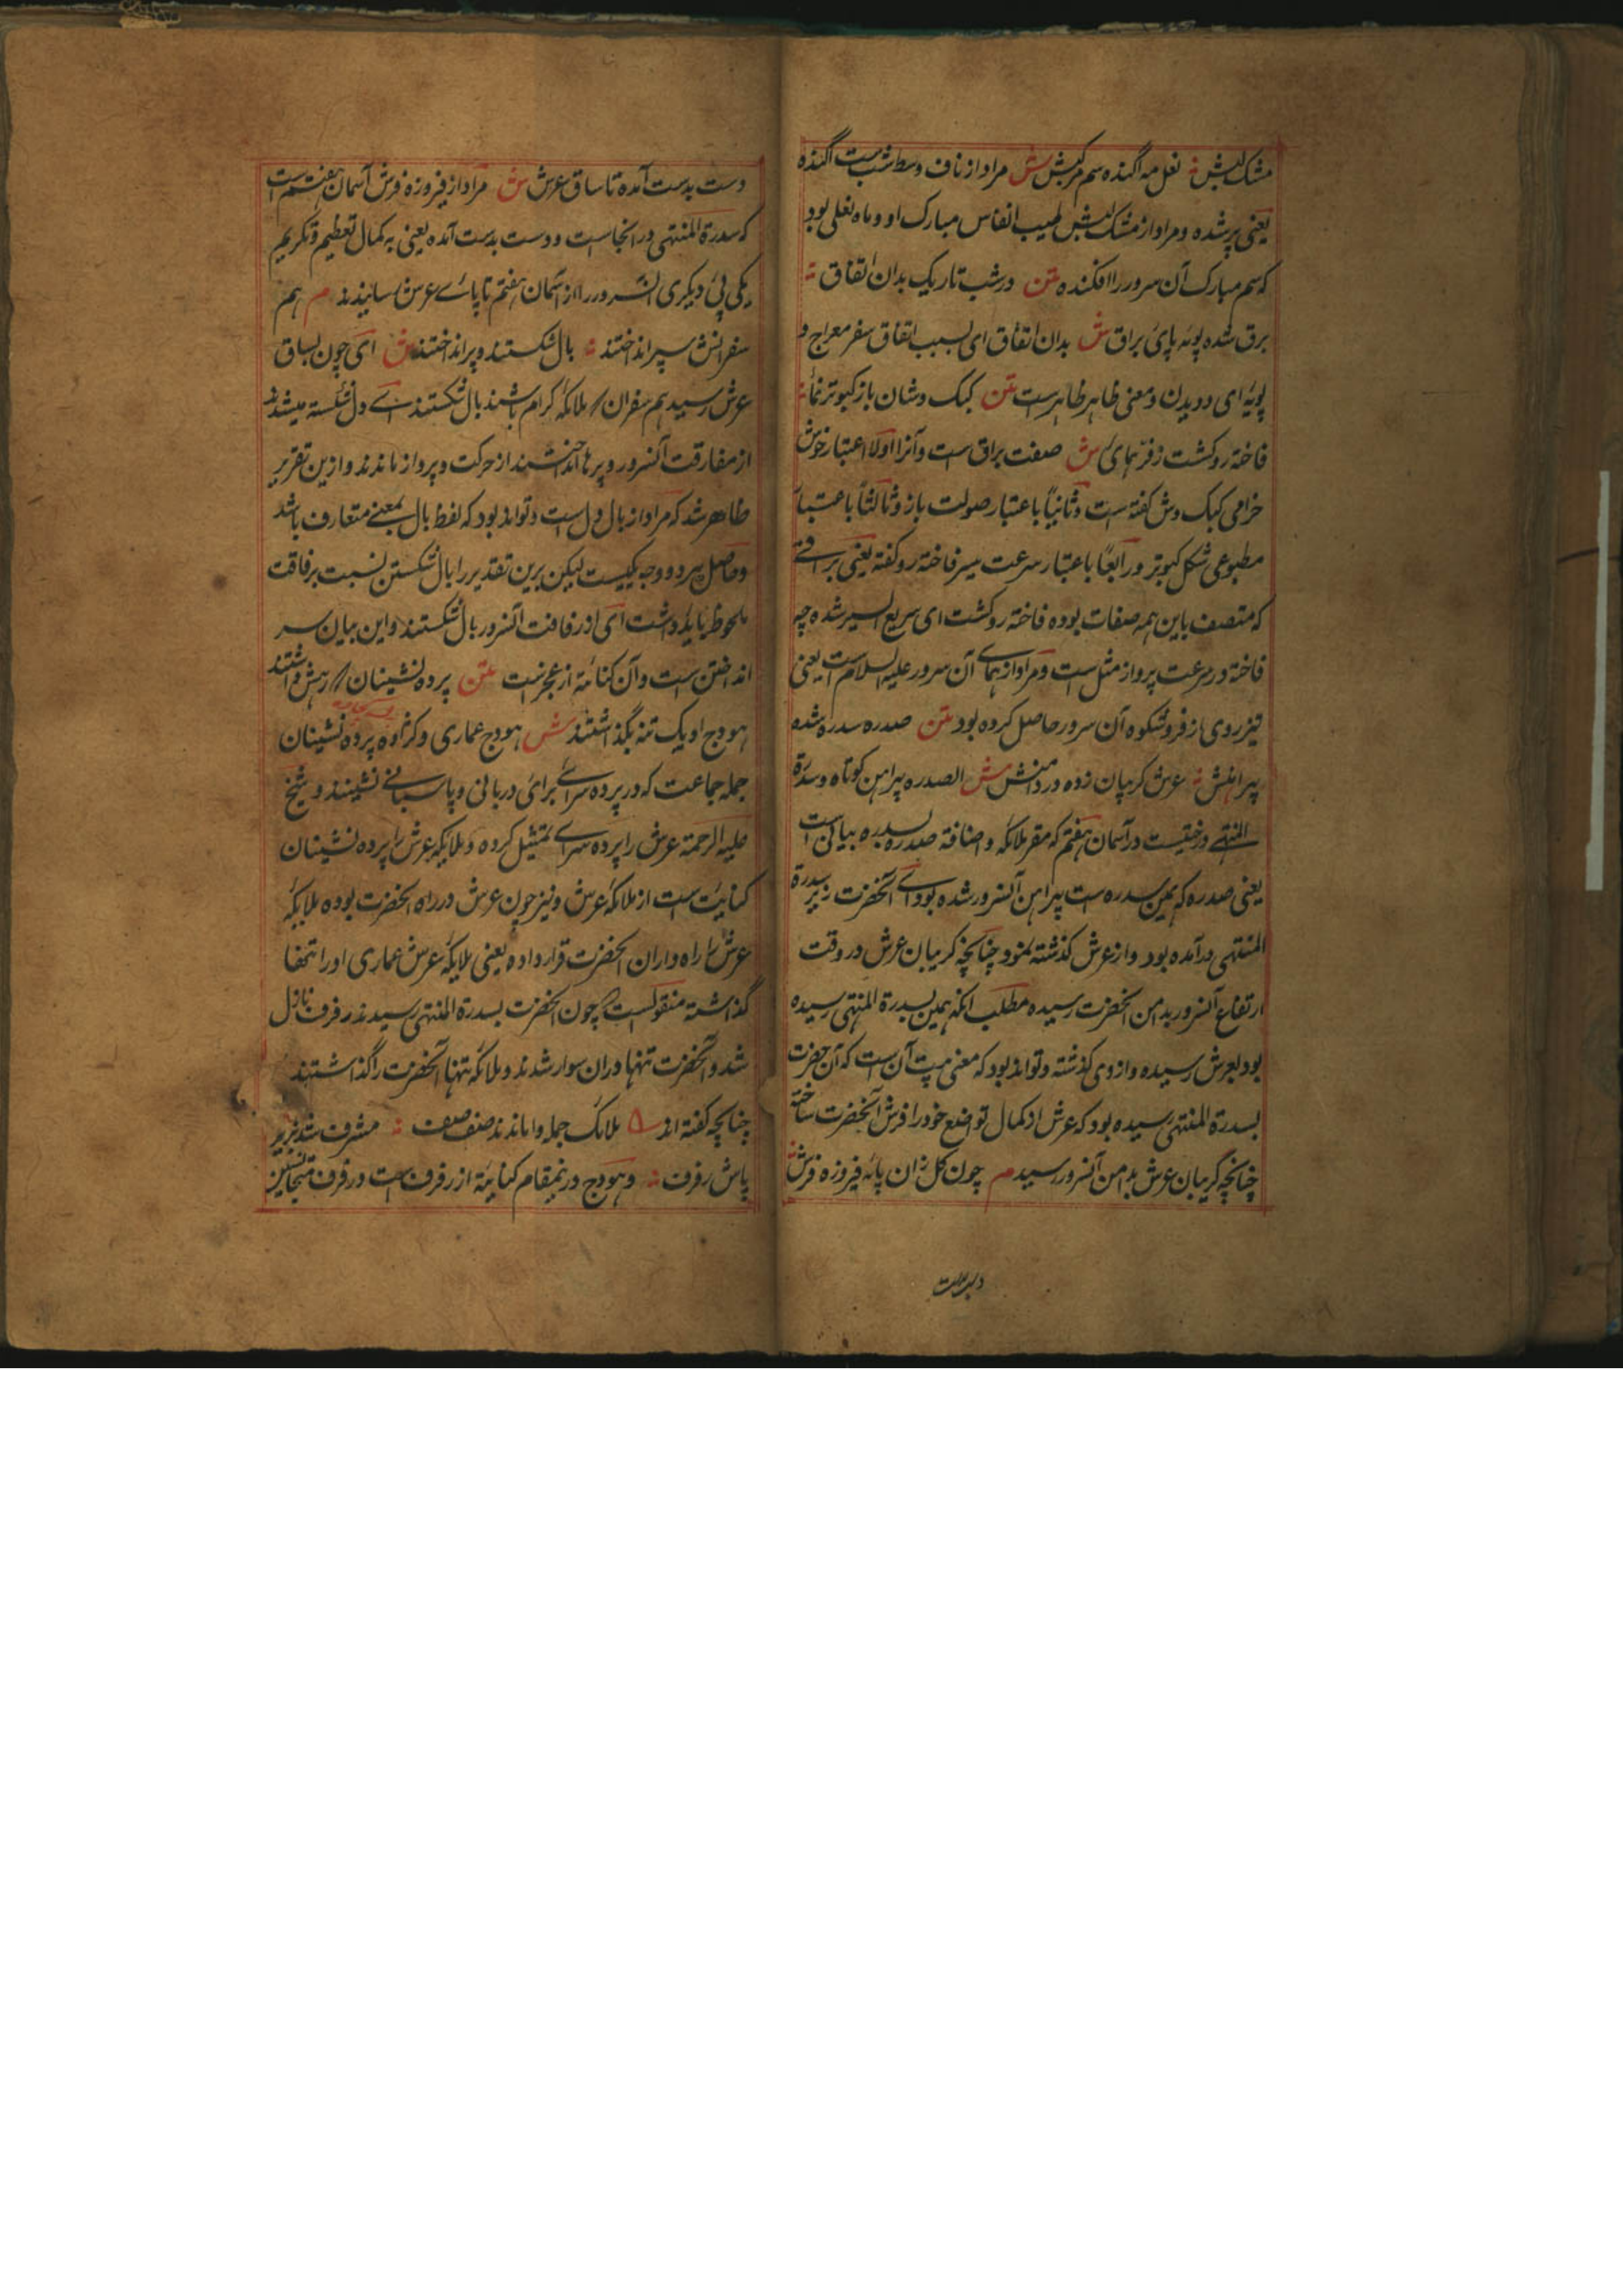 مشک لبش ؞ نعل مه آگنده سم مرکبش ش مراد از ناف وسط شب است آگنده
یعنی پر شده و مراد از مشک لبش طیب انفاس مبارک او و ماه نعلی بود
که سم مبارک آن سرور را افکنده متن در شب تاریک بدان اتفاق ؞
برق شده پویه پای براق ش بدان اتفاق ای بسبب اتفاق سفر معراج و
پویه ای دویدن و معنی ظاهر ظاهر است متن کبک وشان باز کبوتر نمای ؞
فاخته رو گشت ز فر همای ش صفت براق است و آنرا اولا اعتبار خوش
خرامی کبک وش گفته است و ثانیاً باعتبار صولت باز و ثالثاً باعتبار
مطبوعی شکل کبوتر و رابعاً باعتبار سرعت سیر فاخته رو گفته یعنی براقے
که متصف باین همه صفات بوده فاخته رو گشت ای سریع السیر شده چه
فاخته در سرعت پرواز مثل است و مراد از همای آن سرور علیه السلام است یعنی
تیز روی از فر و شکوه آن سرور حاصل کرده بود متن صدره سدره شده
پیراهنش ؞ عرش گریبان زده در دامنش ش الصدره پیراهن کوتاه و سدرة
المنتهے درختیست در آسمان هفتم که مقر ملائکه و اضافة صدره بسدره بیانی است
یعنی صدره که همین سدره است پیراهن آنسرور شده بود اے آنحضرت زیر سدرة
المنتهی در آمده بود و از عرش گذشته نمود چنانچه گریبان عرش در وقت
ارتفاع آنسرور بدامن آنحضرت رسیده مطلب آنکه همین بسدرة المنتهی رسیده
بود بعرش رسیده و از وی گذشته و تواند بود که معنی بیت آن است که آن حضرت
بسدرة المنتهی رسیده بود که عرش از کمال تواضع خود را فرش آنحضرت ساخته
چنانچه گریبان عرش بدامن آنسرور رسید م چون گل زان پایه فیروزه فرش ؞
دست بدست
دست بدست آمده تا ساق عرش ش مراد از فیروزه فرش آسمان هفتم است
که سدرة المنتهی در انجاست و دست بدست آمده یعنی به کمال تعظیم و تکریم
یکی پی دیگری آنسرور را از آسمان هفتم تا پاے عرش رسانیدند م هم
سفرانش سپر انداختند ؞ بال شکستند و پر انداختند ش ای چون بساق
عرش رسید هم سفران که ملائکه کرام باشند بال شکستند اے دل شکسته میشدند
از مفارقت آنسرور و پرها انداختند از حرکت و پرواز ماندند و ازین تقریر
ظاهر شد که مراد از بال دل است و تواند بود که لفظ بال بمعنے متعارف باشد
و حاصل هر دو وجه یکیست لیکن برین تقدیر را بال شکستن نسبت برفاقت
ملحوظ باید داشت ای از رفاقت آنسرور بال شکستند و این بیان سر
انداختن است و آن کنایة از عجز است متن پرده نشینان که رهش داشتند
هودج او یک تنه بگذاشتند ش هودج عماری و کزاوه پرده نشینان
جمله جماعت که در پرده سراے برای دربانی و پاسبانے نشینند و شیخ
علیه الرحمة عرش را پرده سراے تمثیل کرده و ملایکه عرش را پرده نشینان
کنایت است از ملائکه عرش و نیز چون عرش در راه آنحضرت بوده ملایکه
عرش را راه داران آنحضرت قرار داده یعنی ملایکه عرش عماری او را تنها
گذاشته منقولست که چون آنحضرت بسدرة المنتهی رسیدند رفرف نازل
شد و آنحضرت تنها دران سوار شدند و ملائکه تنها آنحضرت را گذاشتند
چنانچه گفته اند ملائک جمله واماندند صف صف ؞ مشرف شد بزیر
پاش رفرف ؞ و هودج درینمقام کنایة از رفرف است و رفرف